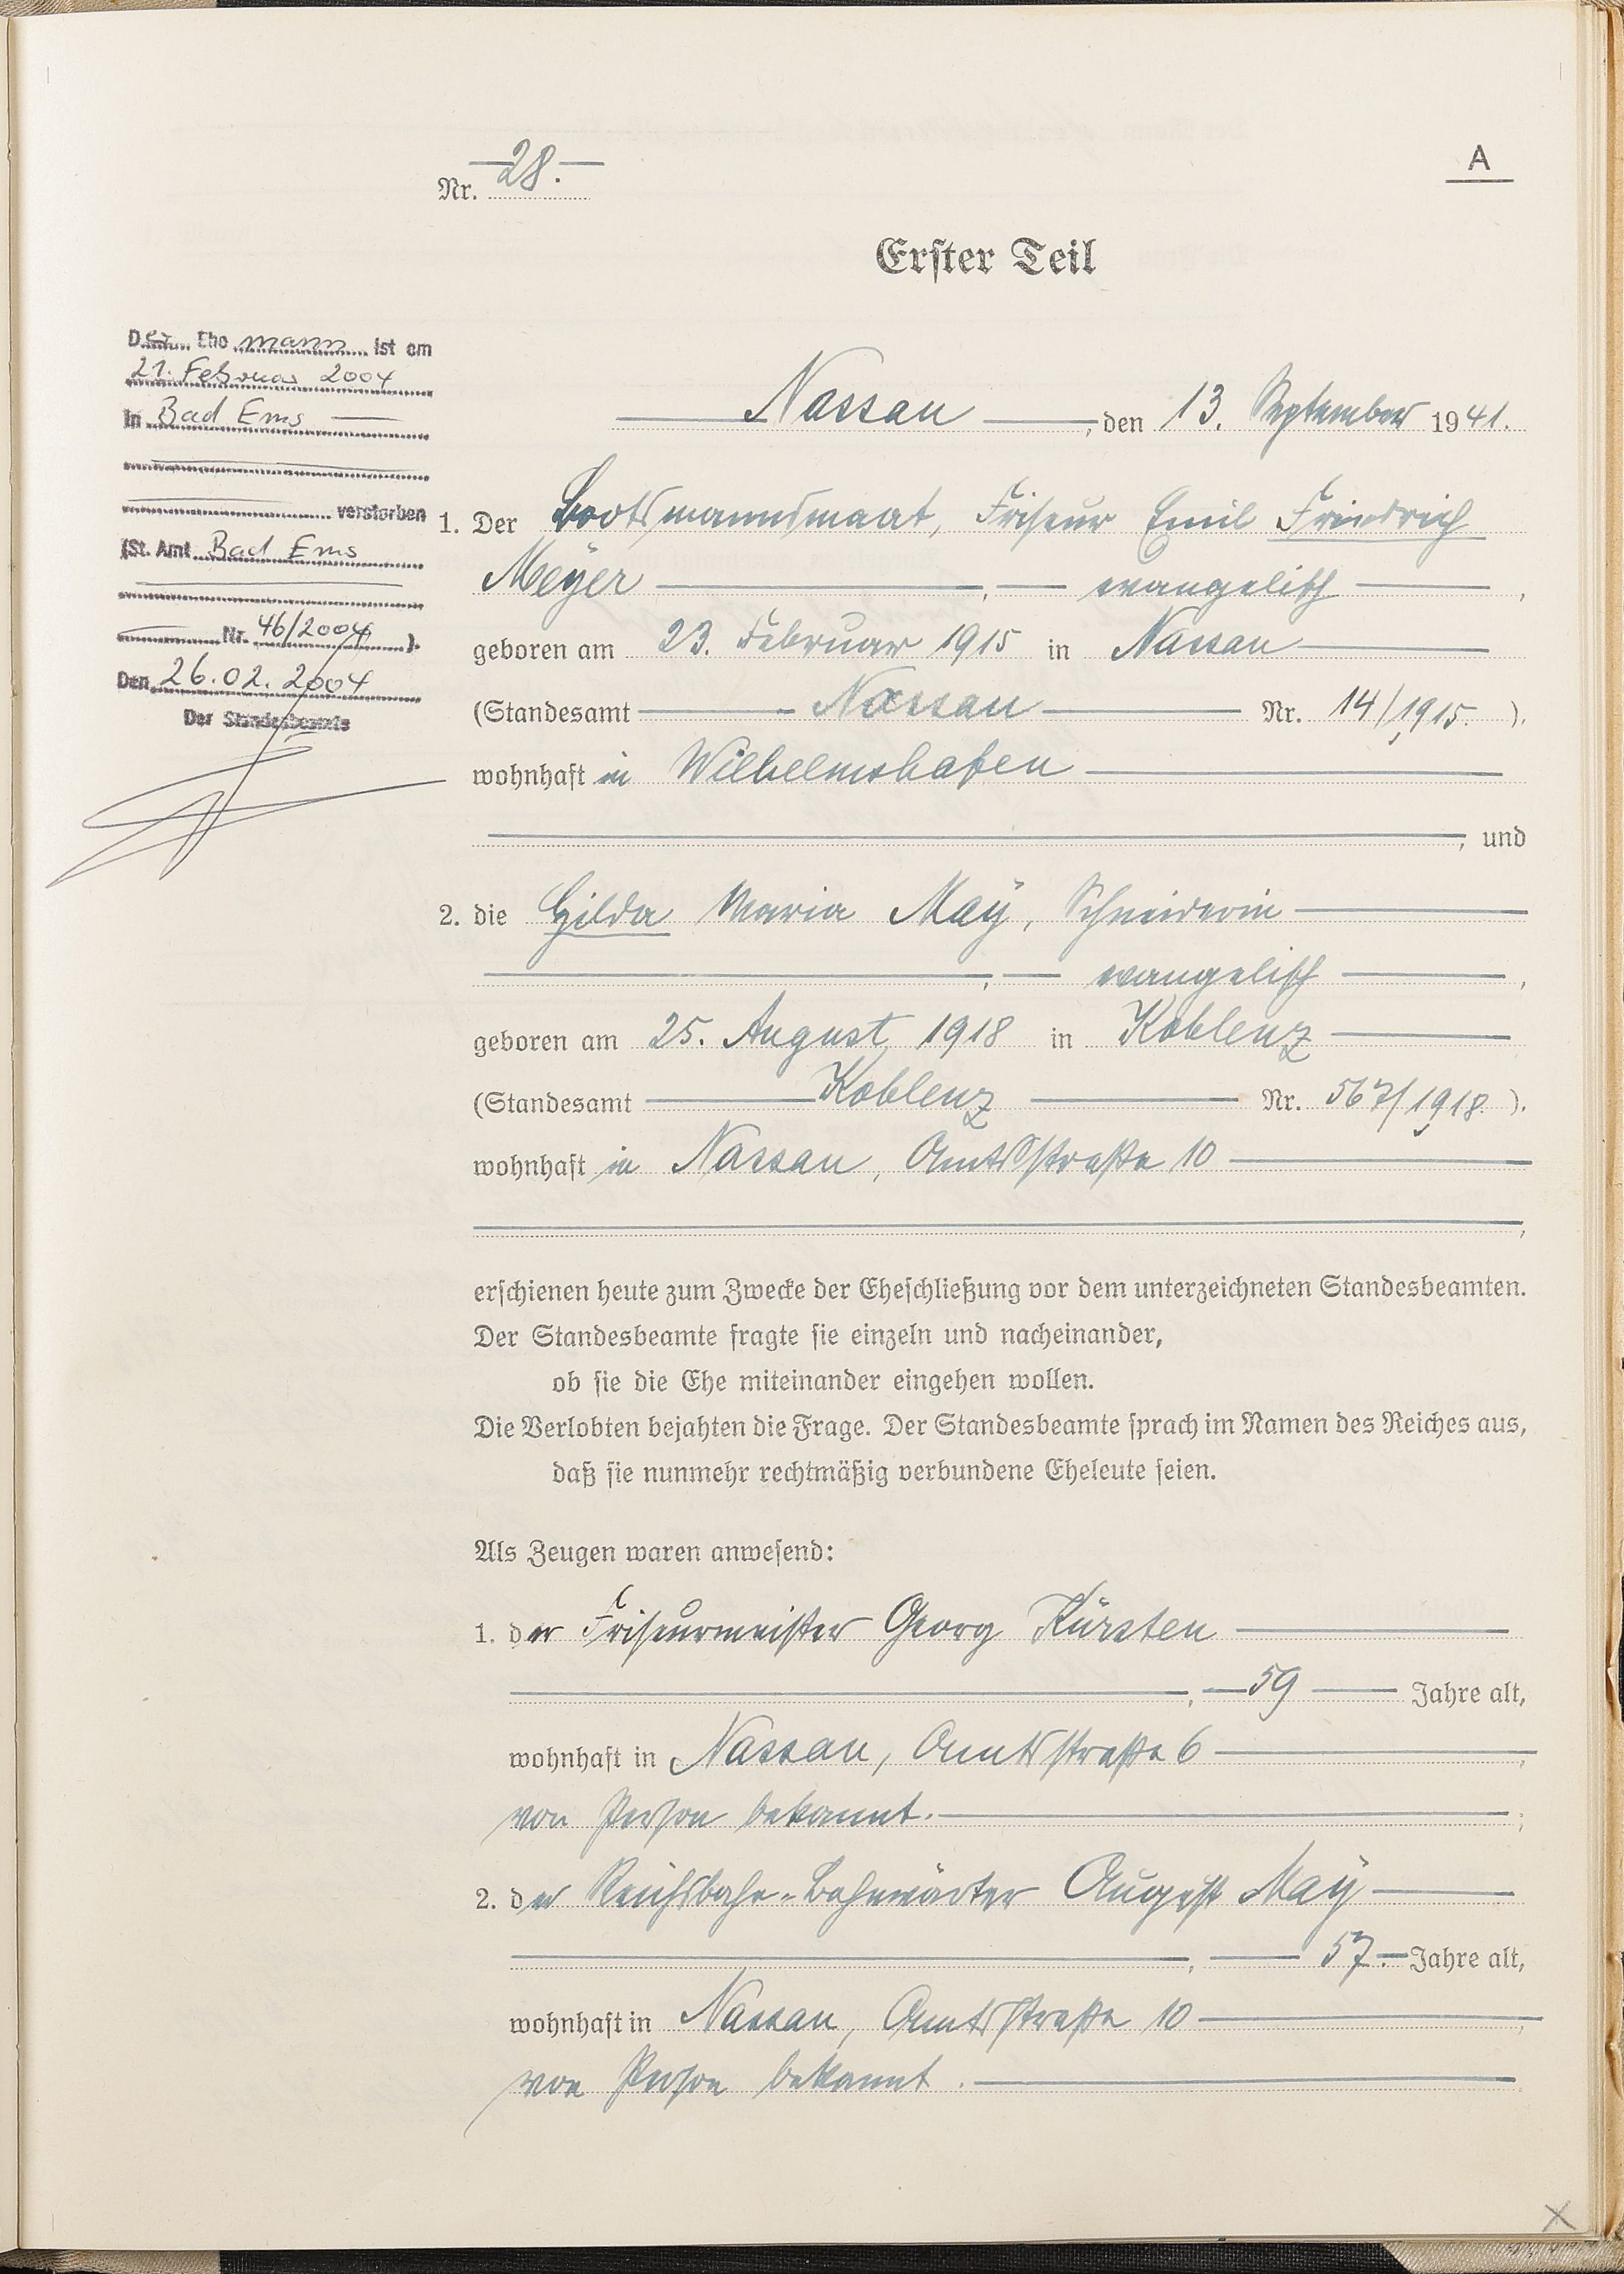 A
Nr. 28.
Erster Teil
Der Ehemann ist am
21. Februar 2004
in Bad Ems
verstorben
(St. Amt Bad Ems
Nr. 46/2004).
Den 26.02.2004
Der Standesbeamte
Nassau, den 13. September 1941.
1. Der Bootsmannsmaat, Friseur Emil Friedrich
Meyer, evangelisch,
geboren am 23. Februar 1915 in Nassau
(Standesamt Nassau Nr. 14/1915.).
wohnhaft in Wilhelmshafen
, und
2. die Hilda Maria May, Schneiderin
, evangelisch,
geboren am 25. August 1918 in Koblenz
(Standesamt Koblenz Nr. 567/1918.).
wohnhaft in Nassau, Amtsstraße 10
,
erschienen heute zum Zwecke der Eheschließung vor dem unterzeichneten Standesbeamten.
Der Standesbeamte fragte sie einzeln und nacheinander,
ob sie die Ehe miteinander eingehen wollen.
Die Verlobten bejahten die Frage. Der Standesbeamte sprach im Namen des Reiches aus,
daß sie nunmehr rechtmäßig verbundene Eheleute seien.
Als Zeugen waren anwesend:
1. der Friseurmeister Georg Kürsten
, 59 Jahre alt,
wohnhaft in Nassau, Amtsstraße 6,
von Person bekannt.;
2. der Reichsbahn-Bahnwärter August May
, 57 Jahre alt,
wohnhaft in Nassau, Amtsstraße 10,
von Person bekannt.